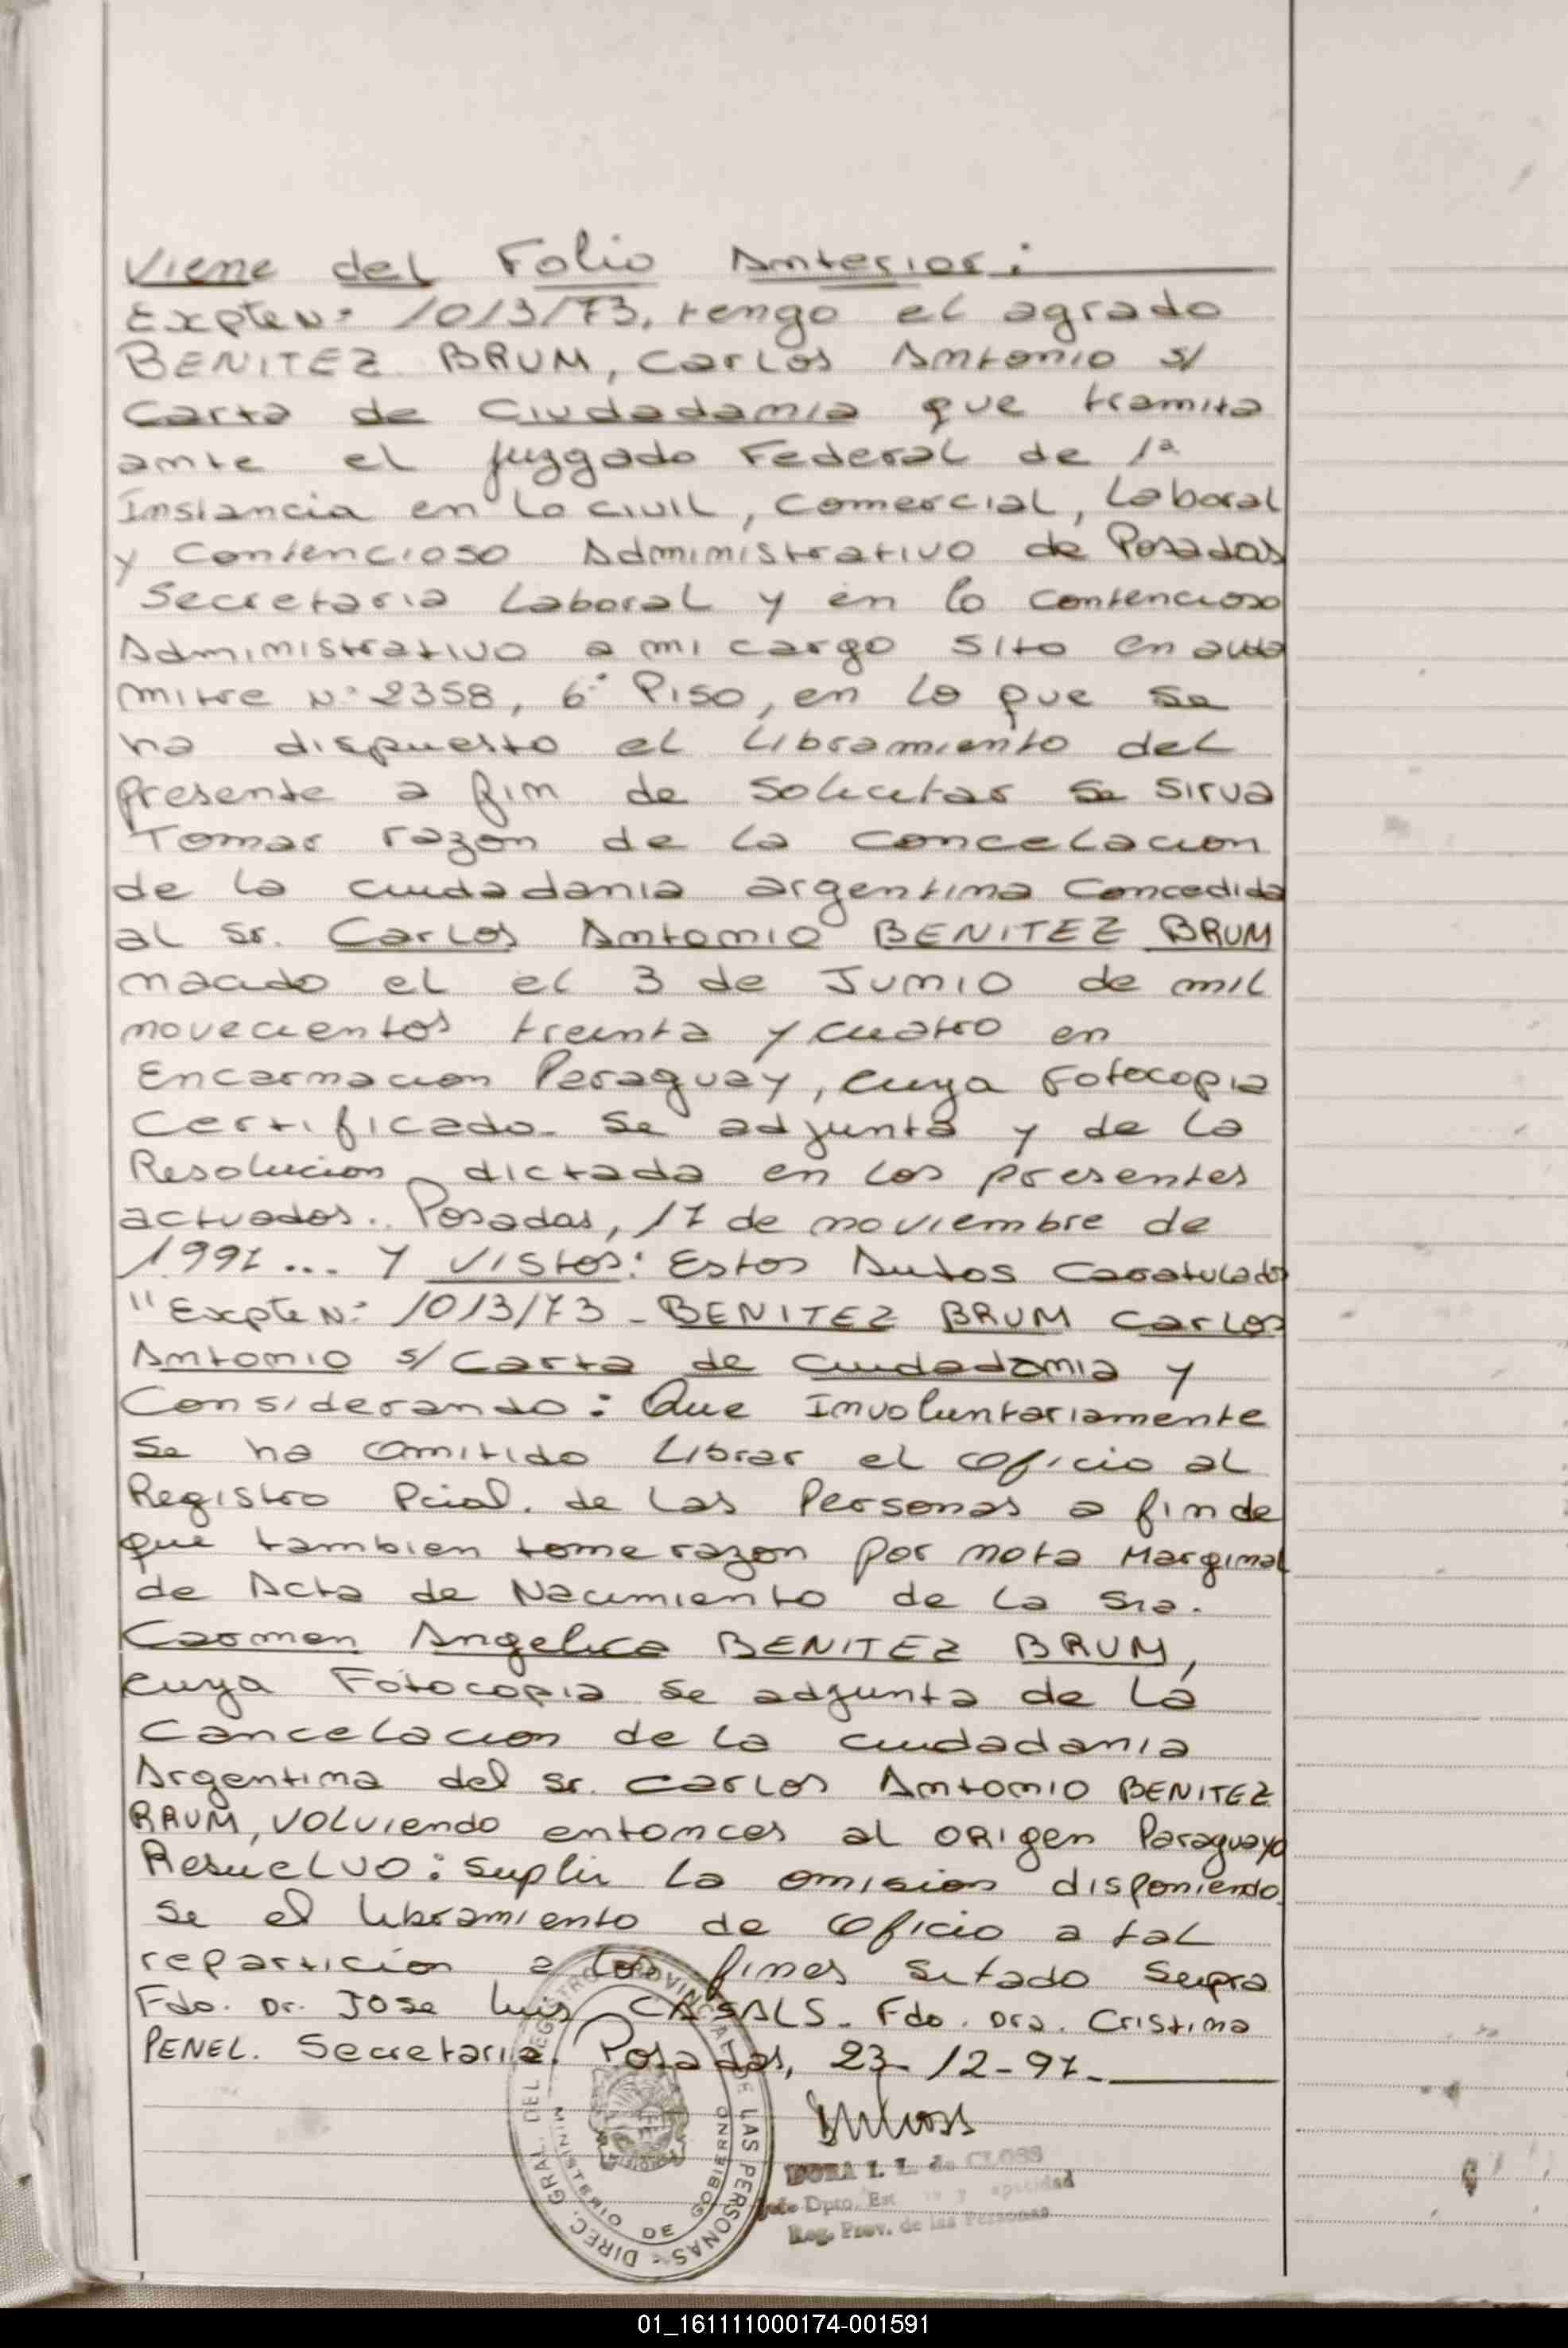 Viene del Folio Anterior:
Expte Nº 1013/73, tengo el agrado
BENITEZ BRUM, Carlos Antonio s/
Carta de Ciudadania que tramita
ante el Juzgado Federal de 1ª
Instancia en lo civil, comercial, laboral
y Contencioso Administrativo de Posadas
Secretaria Laboral y en lo contencioso
Administrativo a mi cargo sito en avda
mitre Nº 2358, 6º Piso, en lo que se
ha dispuesto el libramiento del
presente a fin de solicitar se sirva
Tomar razon de la concelacion
de la ciudadania argentina concedida
al Sr. Carlos Antonio BENITEZ BRUM
nacido el el 3 de Junio de mil
novecientos treinta y cuatro en
Encarnacion Paraguay, cuya Fotocopia
Certificado se adjunta y de la
Resolucion dictada en los presentes
actuados. Posadas, 17 de noviembre de
1997... Y Vistos: Estos Autos caratulados
"Expte Nº 1013/73 - BENITEZ BRUM Carlos
Antonio s/ Carta de Ciudadania y
Considerando: Que Involuntariamente
se ha omitido librar el oficio al
Registro Pcial. de las Personas a fin de
que tambien tome razon por nota Marginal
de Acta de Nacimiento de la Sra.
Carmen Angelica BENITEZ BRUM,
cuya Fotocopia se adjunta de la
Cancelacion de la ciudadania
Argentina del Sr. Carlos Antonio BENITEZ
BRUM, volviendo entonces al origen Paraguayo
Resuelvo: suplir la omision disponiendo
se el libramiento de oficio a tal
reparticion a los fines sitado supra
Fdo. Dr. Jose Luis CASALS. Fdo. Dra. Cristina
PENEL. Secretaria. Posadas, 23-12-97.
DIREC. GRAL. DEL REGISTRO PROVINCIAL DE LAS PERSONAS -
MINISTERIO DE GOBIERNO
DORA I. L. de CLOSS
Jefe Dpto. Est y apacidad
Reg. Prov. de las Personas
01_161111000174-001591